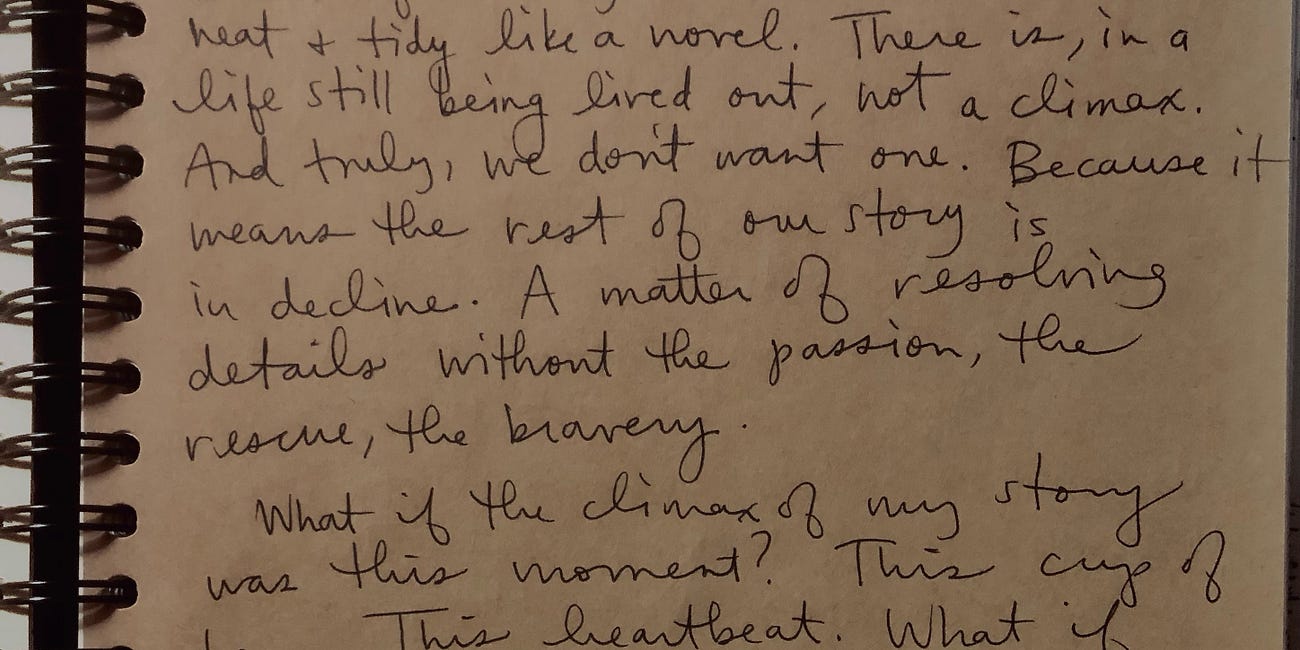 neat + tidy like a novel. There is, in a
life still being lived out, not a climax.
And truly, we don't want one. Because it
means the rest of our story is
in decline. A matter of resolving
details without the passion, the
rescue, the bravery.
What if the climax of my story
was this moment? This cup of
This heartbeat. What if